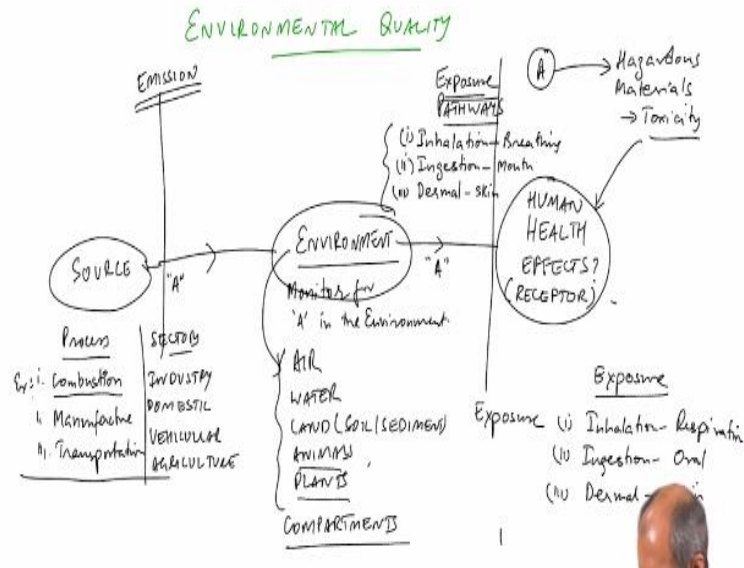 ENVIRONMENTAL QUALITY
EMISSION
Exposure
PATHWAYS
(i) Inhalation - Breathing
(ii) Ingestion - Mouth
(iii) Dermal - Skin
"A"
Hazardous
Materials
→ Toxicity
SOURCE
"A"
ENVIRONMENT
"A"
HUMAN
HEALTH
EFFECTS?
(RECEPTOR)
Monitor for
'A' in the Environment.
Process
Ex: i. Combustion
ii. Manufacture
iii. Transportation
SECTOR
INDUSTRY
DOMESTIC
VEHICULAR
AGRICULTURE
AIR
WATER
LAND (SOIL/SEDIMENT)
ANIMALS
PLANTS
COMPARTMENTS
Exposure
Exposure
(i) Inhalation - Respiration
(ii) Ingestion - Oral
(iii) Dermal -